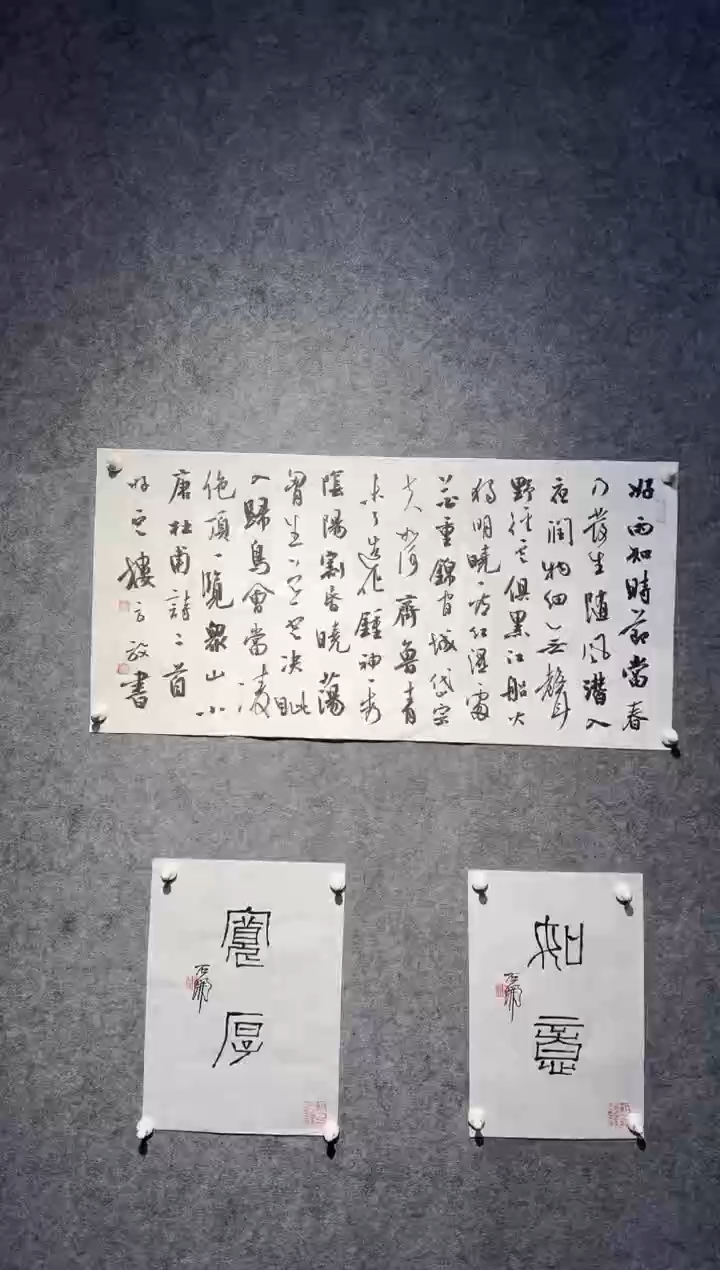 好雨知時節當春
乃發生随風潛入
夜潤物細無聲
野徑雲俱黑江船火
獨明曉看紅濕處
花重錦官城岱宗
夫如何齊魯青
未了造化鍾神秀
陰陽割昏曉蕩
胷生層雲决眦
入歸鳥會當凌
絶頂一覽眾山小
唐杜甫詩二首
樓 書
如意
寬厚